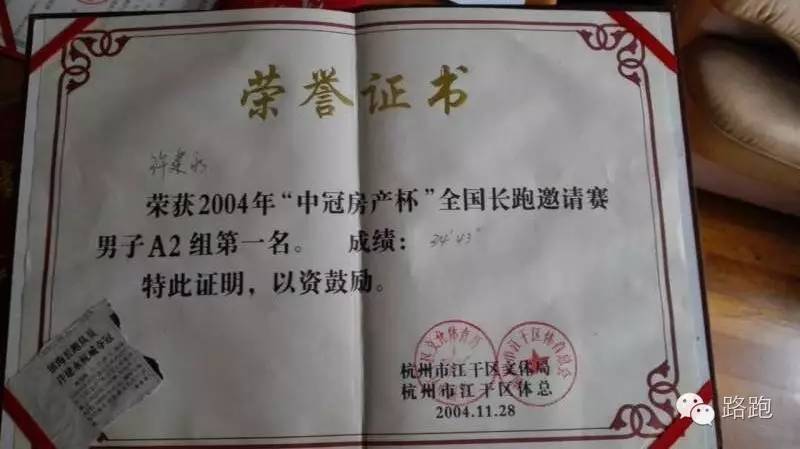 荣誉证书
许建永
荣获2004年“中冠房产杯”全国长跑邀请赛
男子A2组第一名。 成绩：34′43″
特此证明，以资鼓励。
杭州市江干区文体局
杭州市江干区体总
2004.11.28
路跑